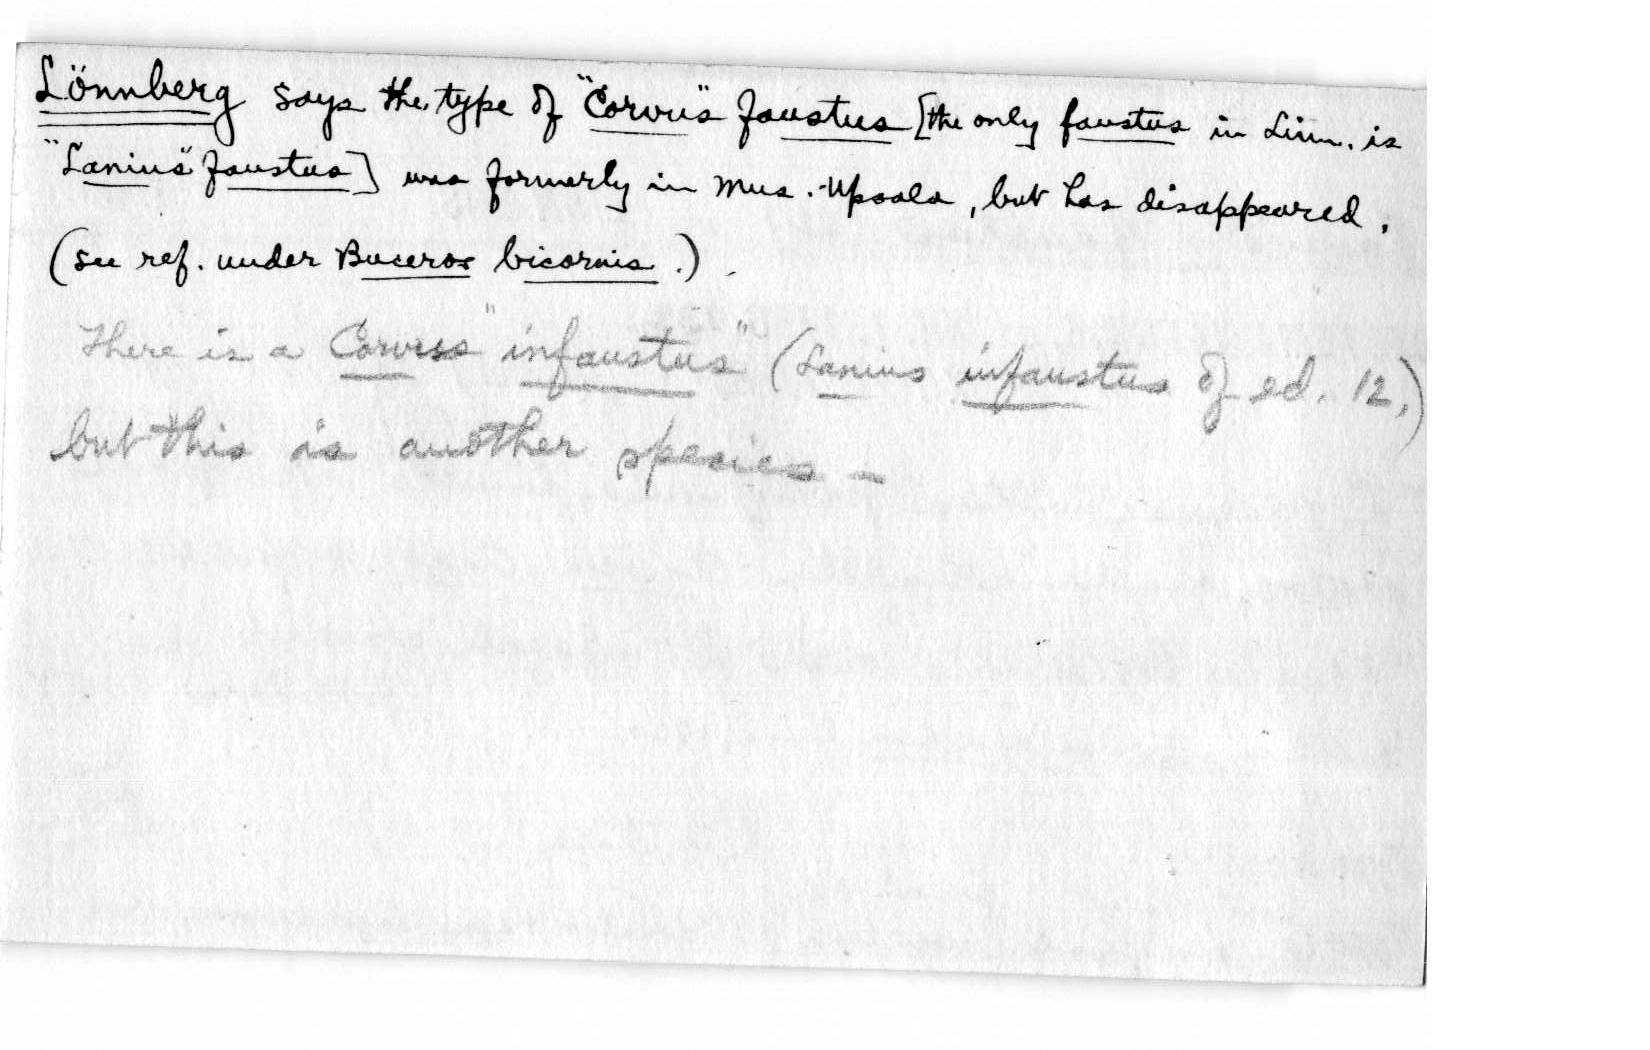 Lönnberg says the type of "Corvus" faustus [the only faustus in Linn. is
"Lanius" faustus] was formerly in Mus. Upsala, but has disappeared.
(see ref. under Buceros bicornis.)
There is a Corvus "infaustus" (Lanius infaustus of ed. 12,)
but this is another species –